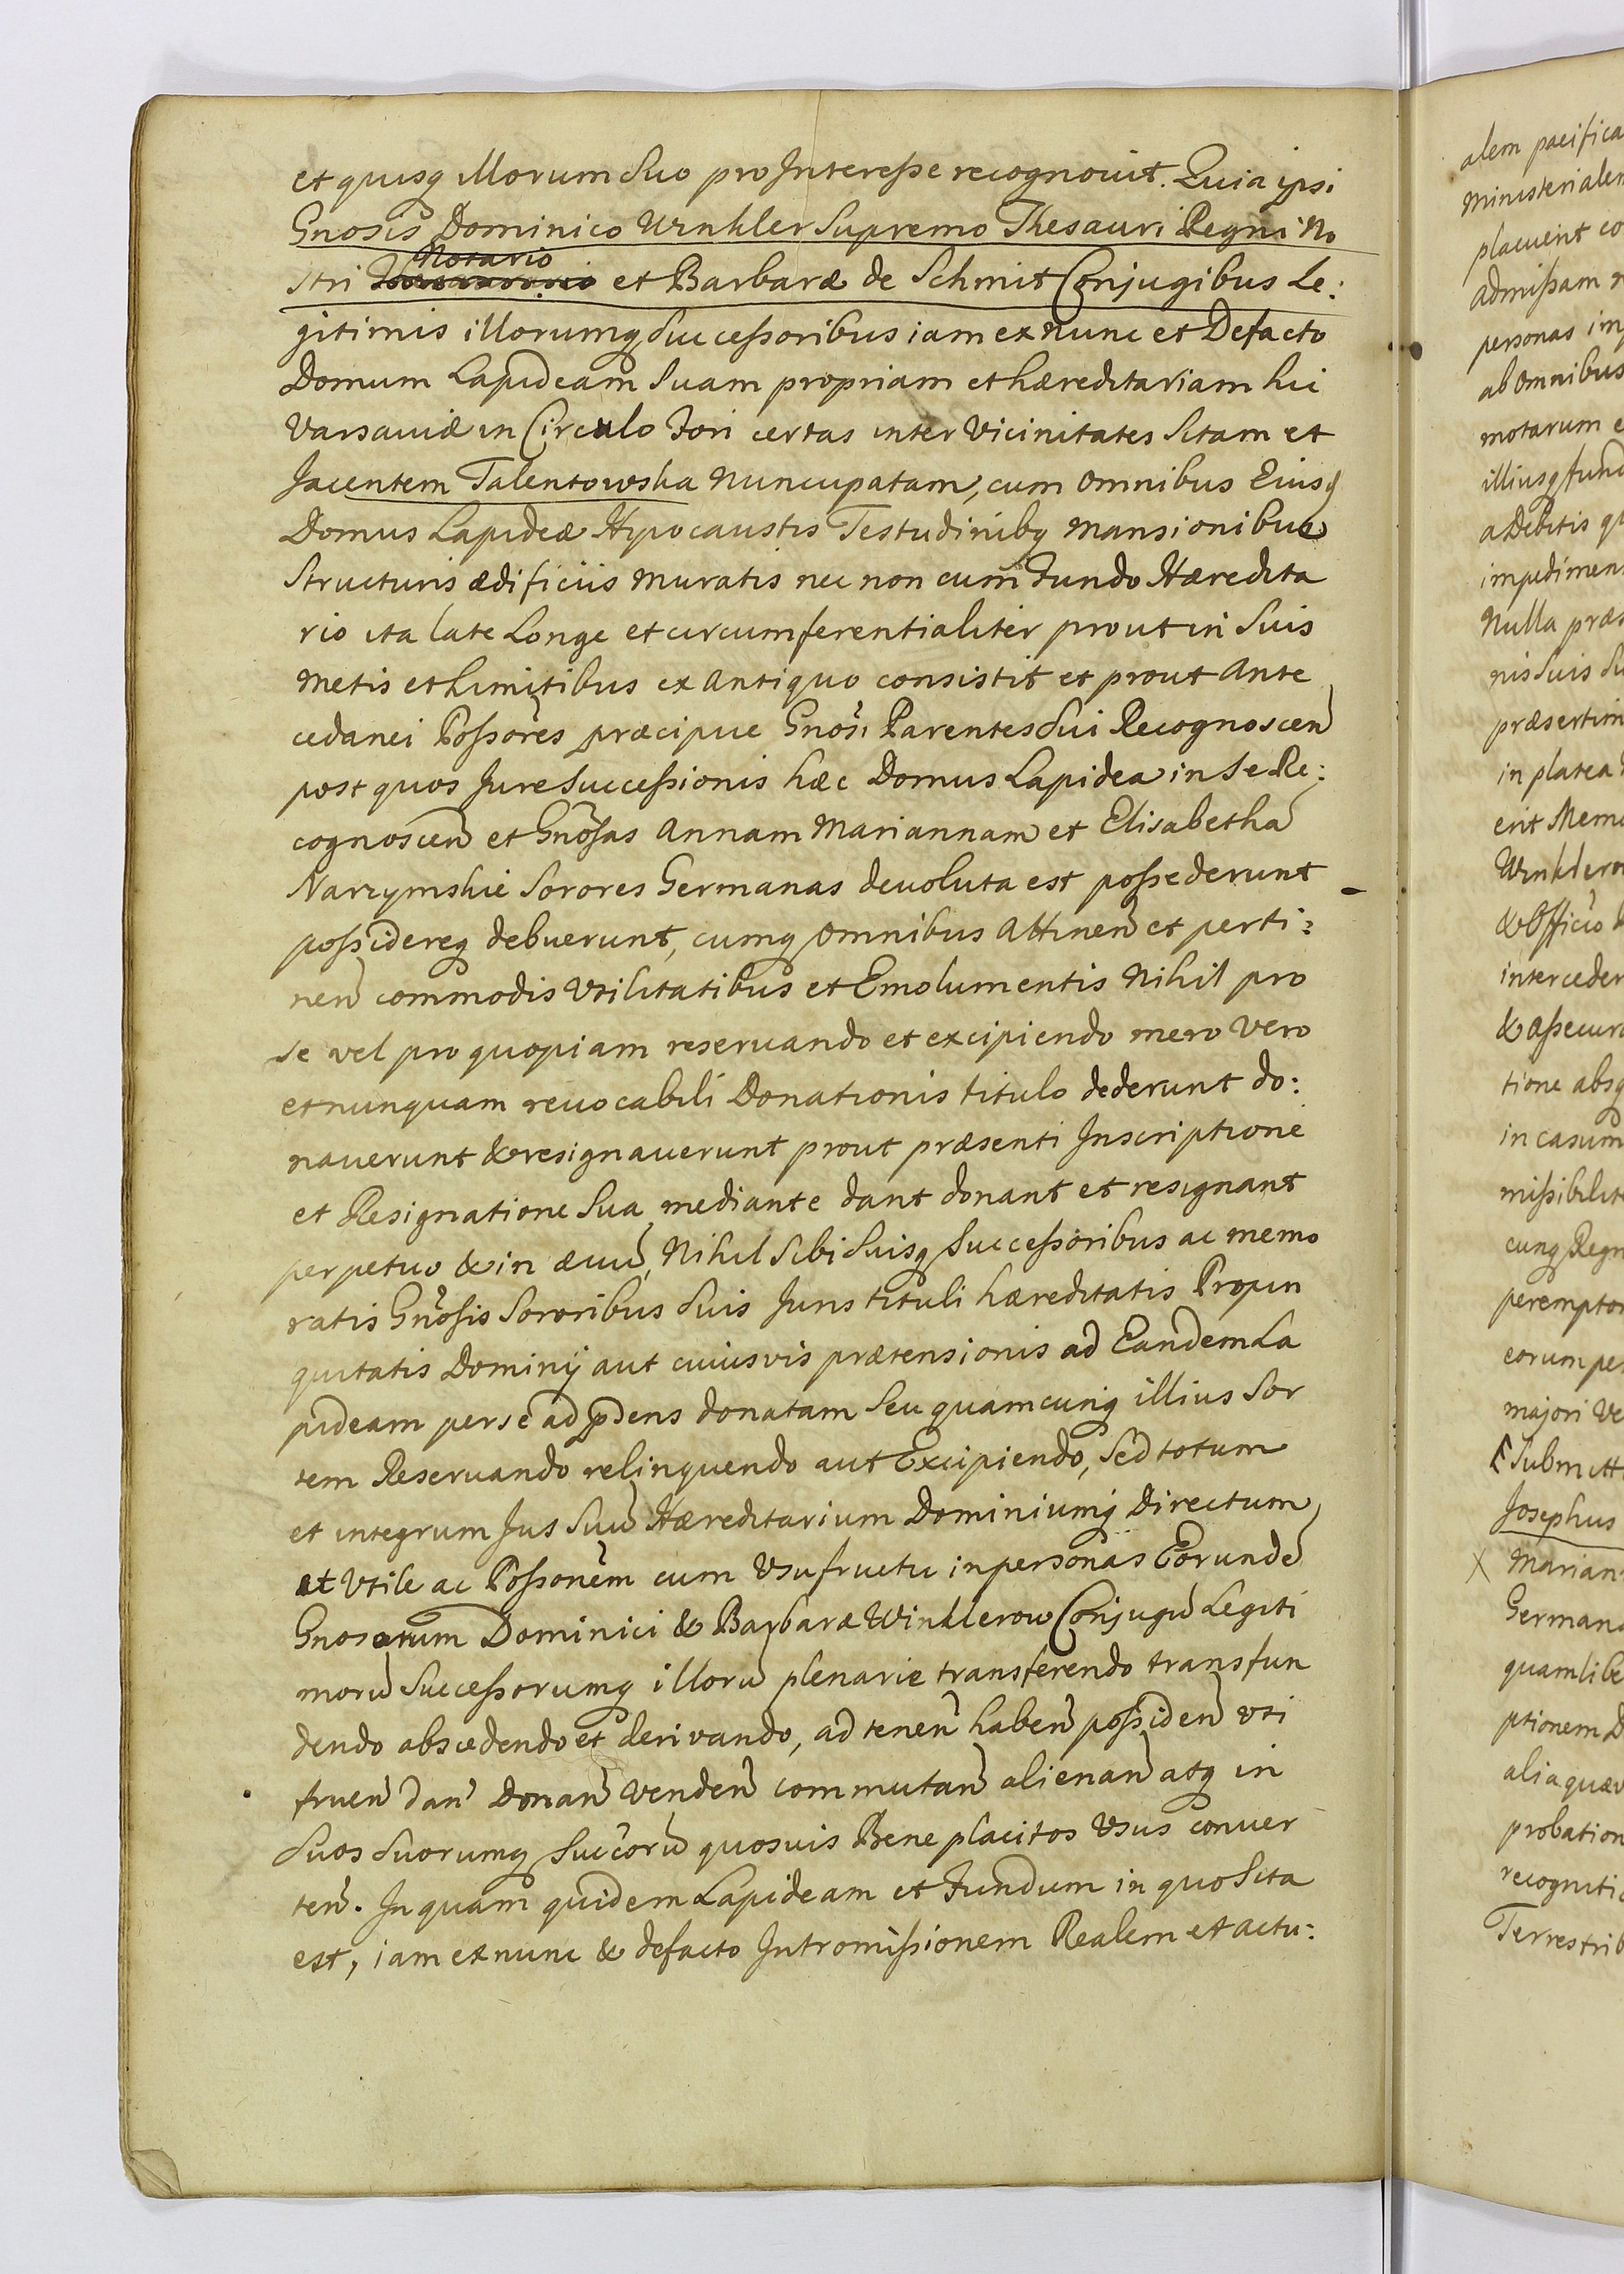 et quisq illorum Suo pro Interesse recognouit. Quia ipsi
Gnosis Dominico Winkler Supremo Thesauri Regni No
Notario
stri et Barbaræ de Schmit Conjugibus Le:
gitimis illorumq Successoribus iam ex nunc et Defacto
Domum Lapideam Suam propriam et hæreditariam hic
Varsauiæ in Circulo Fori certas inter Vicinitates Sitam et
Jacentem Talentowska Nuncupatam, cum omnibus Eiusq
Domus Lapideæ Hypocaustis Testudinibq Mansionibus
Structuris ædificiis Muratis nec non cum Fundo Hæredita
rio ita late Longe et circumferentialiter prout in Suis
Metis et Limitibus ex Antiquo consistit et prout Ante
cedanei Possores præcipue Gnosi Parentes Sui Recognoscen
post quos Jure Successionis hæc Domus Lapidea in Se Re:
cognoscen et Gnosas Annam Mariannam et Elisabetha
Narzymskie Sorores Germanas deuoluta est possederunt
possidereq debuerunt, cumq omnibus Attinen et perti:
nen commodis Vtilitatibus et Emolumentis Nihil pro
Se vel pro quopiam reseruando et excipiendo mero Vero
et nunquam reuocabili Donationis titulo dederunt do:
nauerunt & resignauerunt prout præsenti Inscriptione
et Resignatione Sua mediante dant donant et resignant
perpetuo & in æuu, Nihil Sibi Suisq Successoribus ac memo
ratis Gnosis Sororibus Suis Juris tituli hæreditatis Propin
quitatis Dominij aut cuiusvis prætensionis ad Eandem La
pideam per se ad pdens donatam Seu quamcunq illius Sor
tem Reseruando relinquendo aut Excipiendo, Sed totum
et integrum Jus Suu Hæreditarium Dominiumq Directum
et Vtile ac Possonem cum Vsufructu in personas Eorunde
Gnosorum Dominici & Barbaræ Winklerow Conjugu Legiti
moru Successorumq illoru plenarie transferendo transfun
dendo abscedendo et deriuando, ad tenen haben possiden vti
fruen dan Donan Venden commutan alienan atq in
Suos Suorumq Succoru quosuis Bene placitos Vsus conuer
ten. In quam quidem Lapideam et Fundum in quo Sita
est, iam ex nunc & defacto Intromissionem Realem et actu:
alem pacifica
Ministerialem
placuerit co
Admissam
personas im
ab omnibus
motarum e
illiusq fund
a Debitis qu
impedimen
Nulla præ
nis Suis Su
præsertim
in platea
erit Memo
Winklerow
& Officio
interceder
& assecura
tione absq
in casum
missibilit
cunq Regn
peremptor
eorum pe
majori Ve
Submitt
Josephus
X Mariann
Germana
quamlibe
ptionem D
alia quæv
probation
recognitio
Terrestrib